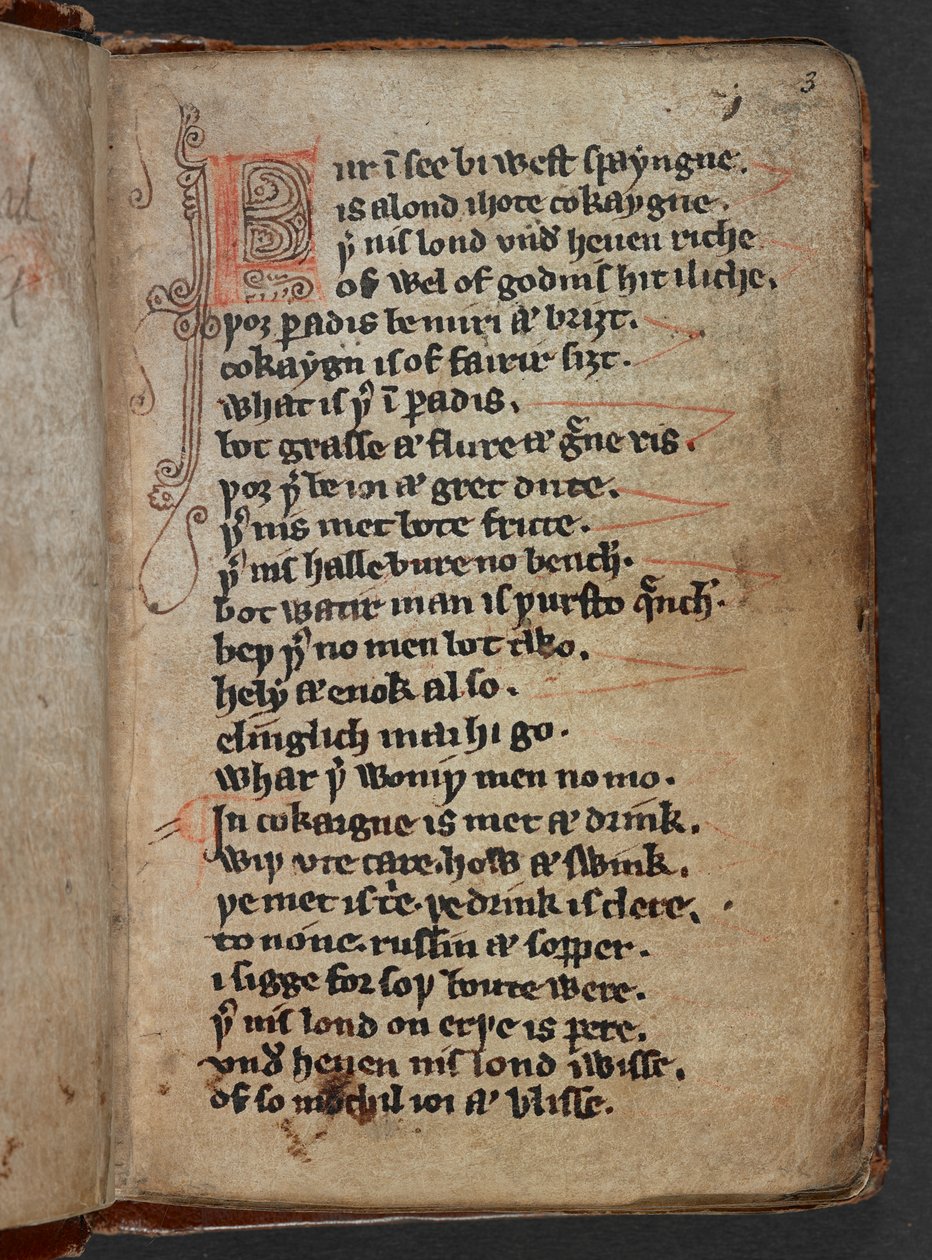 3
Bur ī see bi west spayngne.
is a lond ihote cokaygne.
þ̉ nis lond vnd̉ heuen riche
of wel of godnis hit iliche.
þoꝛ ꝑadis be miri ⁊ briȝt.
cokaygn is of fairir siȝt.
what is þ̉ ī ꝑadis.
bot grasse ⁊ flure ⁊ gͬene ris.
þoꝛ þ̉ be ioi ⁊ gret dute.
þ̉ nis met bote frute.
þ̉ nis halle bure no bench̉.
bot watir man is þursto qͣnch̉.
beþ þ̉ no men bot two.
hely ⁊ enok also.
elīglich mai hi go.
whar þ̉ woniþ men no mo.
In cokaigne is met ⁊ drink.
wiþ vte care. how ⁊ swink.
þe met is tͥe. þe drink is clere.
to none. russin ⁊ sopper.
i sigge foꝛ soþ boute were.
þ̉ nis lond on erþe is pere.
vnd̉ heuen nis lond iwisse.
of so mochil ioi ⁊ blisse.